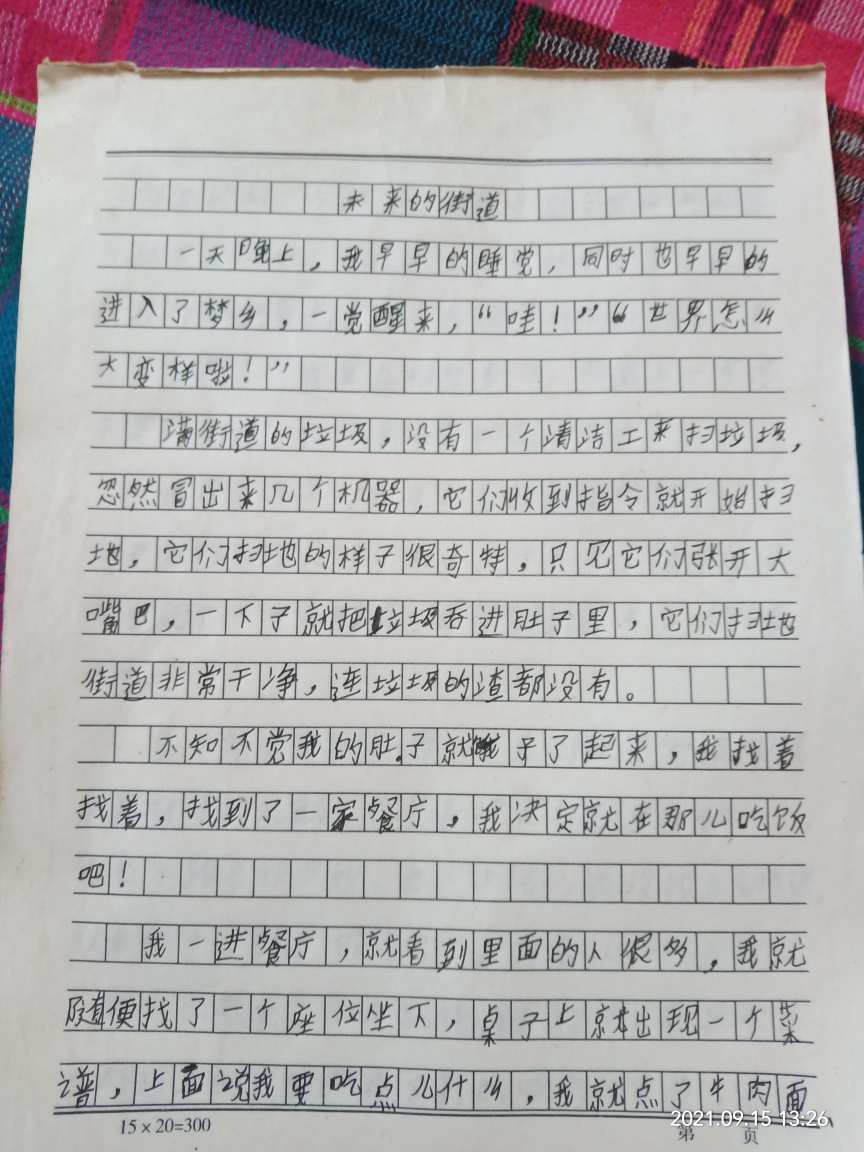 未来的街道
一天晚上，我早早的睡觉，同时也早早的
进入了梦乡，一觉醒来，“哇！”“世界怎么
大变样啦！”
满街道的垃圾，没有一个清洁工来扫垃圾，
忽然冒出来几个机器，它们收到指令就开始扫
地，它们扫地的样子很奇特，只见它们张开大
嘴巴，一下子就把垃圾吞进肚子里，它们扫地
街道非常干净，连垃圾的渣都没有。
不知不觉我的肚子就饿了起来，我找着
找着，找到了一家餐厅，我决定就在那儿吃饭
吧！
我一进餐厅，就看到里面的人很多，我就
随便找了一个座位坐下，桌子上就出现一个菜
谱，上面说我要吃点儿什么，我就点了牛肉面
15×20=300
第 页
2021.09.15 13:26